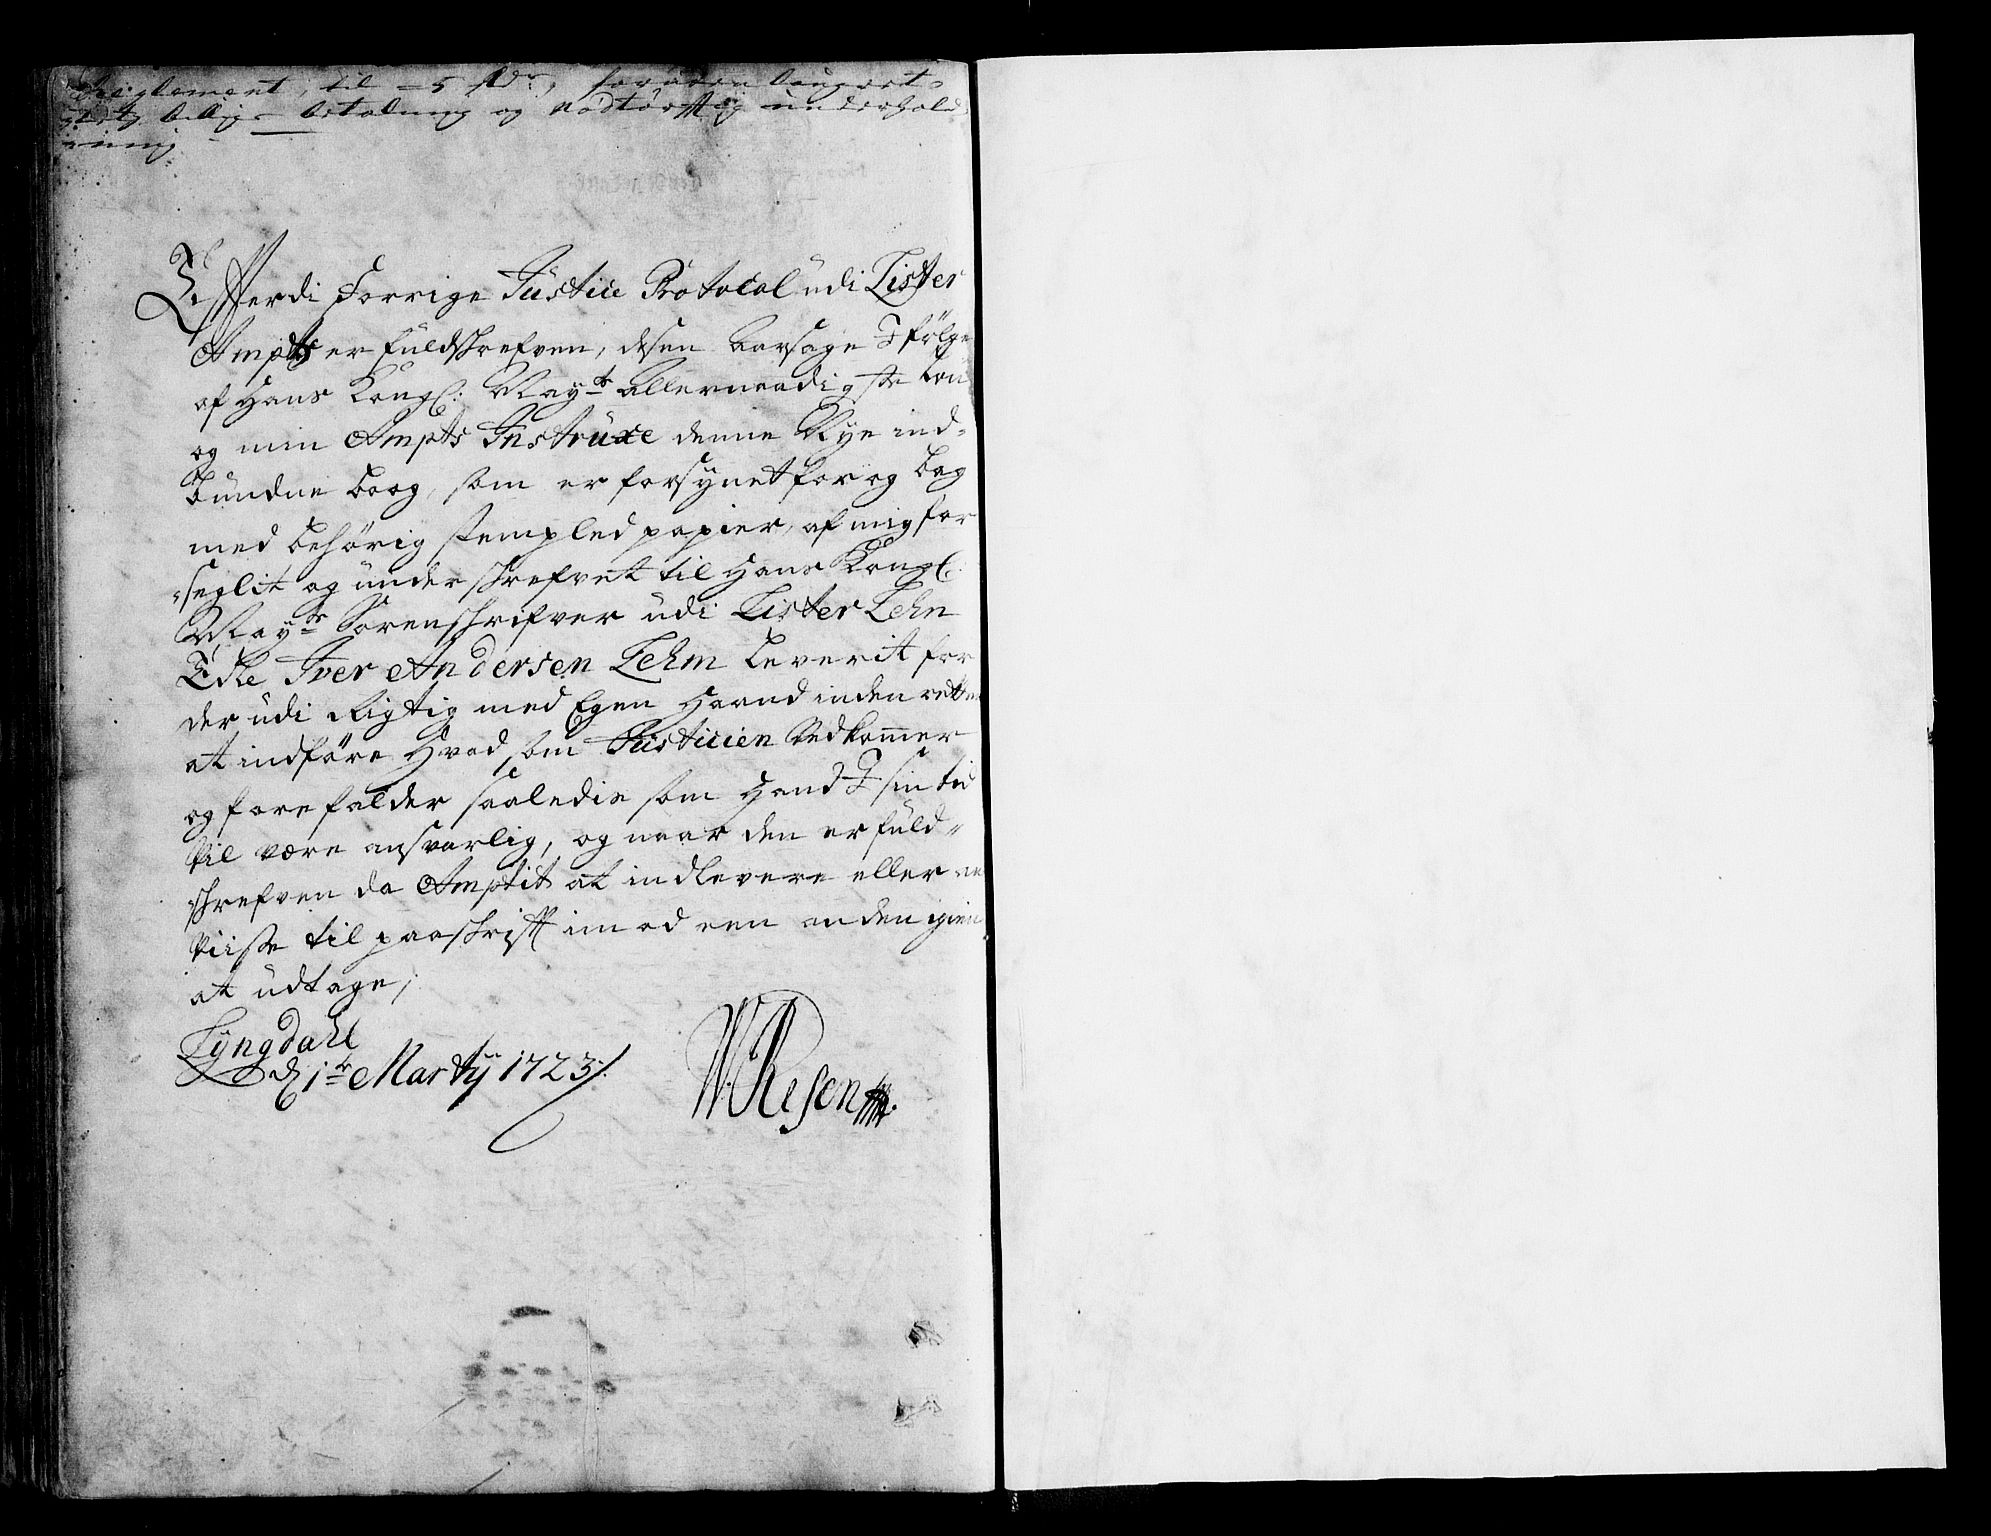 Reglement, til 5 rdr, foruden
billig betalning og nødtørftig underhold
ning
Efterdi forrige Justice Protocol udi Lister
Ampts er fuldskrefven, desen aarsage J følge
af Hans Kongl: Mayts allernaadigste Lou
og min Ampts Instruxe denne Nye ind-
bundne boog, som er forsynet for og bag
med behörig stempled papier, af mig for
seglit og underskrefvet til Hans Kongl:
Mayts Sorenskrifver udi Lister Lehn
Edle Iver Andersen Lehm leverit for
der udi Rigtig med Egen Haand inden retten
at indføre Hvad, som Justicien Vedkomer
og forefalder saaledis som Hand J sin tid
Vil være ansvarlig, og naar den er fuld-
skrefven da Amptit at indlevere eller
Viise til paaskrift imod een anden igien
at udtage,
Lyngdahl
d 1te Marty 1723/.
WResen